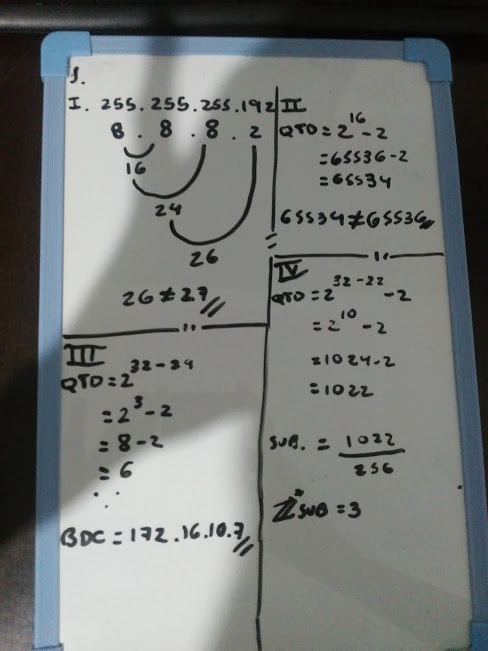 1.
I. 255.255.255.192
8 . 8 . 8 . 2
16
24
26
26 ≠ 27 //
II
QTD = 2^16 - 2
= 65536 - 2
= 65534
65534 ≠ 65536 //
III
QTD = 2^32-29
= 2^3 - 2
= 8 - 2
= 6
∴
BDC = 172.16.10.7 //
IV
QTD = 2^32-22 - 2
= 2^10 - 2
= 1024 - 2
= 1022
SUB. = 1022 / 256
ℤ* SUB = 3